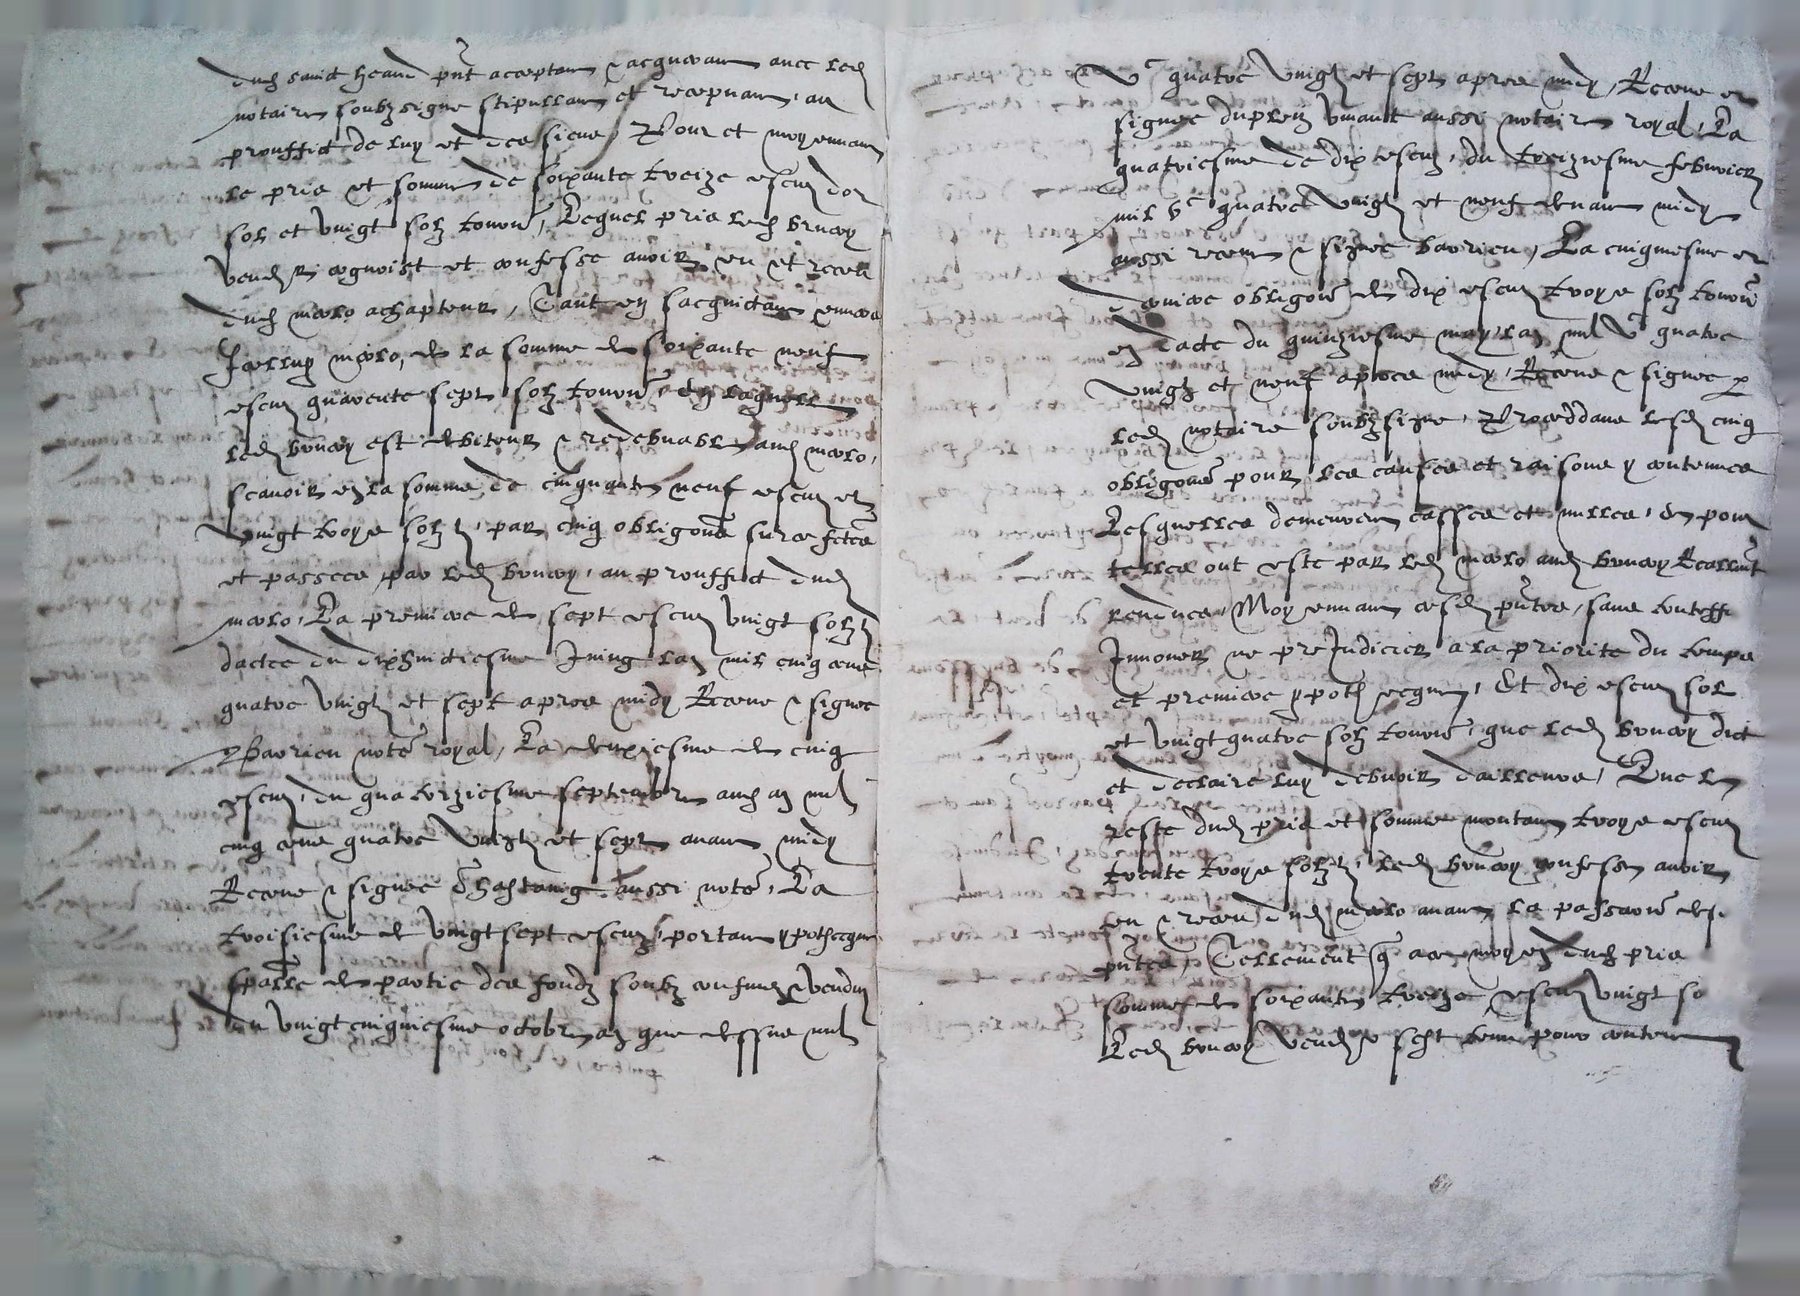 dud sainct heand pnt acceptant & acquerant avec led
notaire soubzsigne stipullant et recepvant au
prouffict de luy et des siens, Pour et moyennant
le pris et somme de soixante treize escuz dor
sol et vingt solz tourn, Lequel pris led bruney
vendr cognoist et confesse avoir eu et receu
dud merlo achapteur, Tant en sacquictant envers
Icelluy merlo, de la somme de soixante neuf
escuz quarente sept solz tourn en laquelle
led bruney est debiteur & redebvable aud merlo,
scavoir en la somme de cinquante neuf escuz et
vingt troys solz t, par cinq obligons sur ce fctes
et passees par led bruney, au prouffict dud
merlo, La premiere de sept escuz vingt solz t
dactee du dixhuictiesme Juing lan mil cinq cens
quatre vingtz et sept apres midy Receue & signee
p Baorieu note royal, La deuxiesme de cinq
escuz, du quatorziesme septembre aud an mil
cinq cens quatre vingtz et sept avant midy
Receue & signee Chastanig aussi note, La
troisiesme de vingt sept escuz, portant ypothecque
spalle de partie des fondz soubz confinez & venduz
du vingt cinquiesme octobre an que dessus mil
Vc quatre vingtz et sept apres midy, Receue et
signee dupleuz vivant aussi notaire royal, La
quatriesme de dix escuz, du treiziesme febvrier
mil Vc quatre vingtz et neuf devant midy
aussi receue & signee baorieu, La cinquiesme et
derniere obligon de dix escuz troys solz tourn
en dacte du quinziesme may lan mil Vc quatre
vingtz et neuf apres midy, Receue & signee p
led notaire soubzsigne, Proceddans lesd cinq
obligons pour les causes et raisons y contenues
Lesquelles demeurent cassees et nulles, et pour
telles ont este par led merlo aud bruney Reallmt
rendues, Moyennant cesd pntes, sans touteffs
Innover ne preJudicier a la priorite du temps
et premiere ypoth ecque, Et dix escuz sol
et vingt quatre solz tourn, que led bruney dict
et declaire luy debvoir dailleurs, Que le
reste dud pris et somme montant troys escuz
trente troys solz t, led bruney confesse avoir
eu & receu dud merlo avant la passaon desd
pntes, Tellement q au moyen dud pris
somme de soixante treize escuz vingt so
Led bruney vendr sest tenu pour content